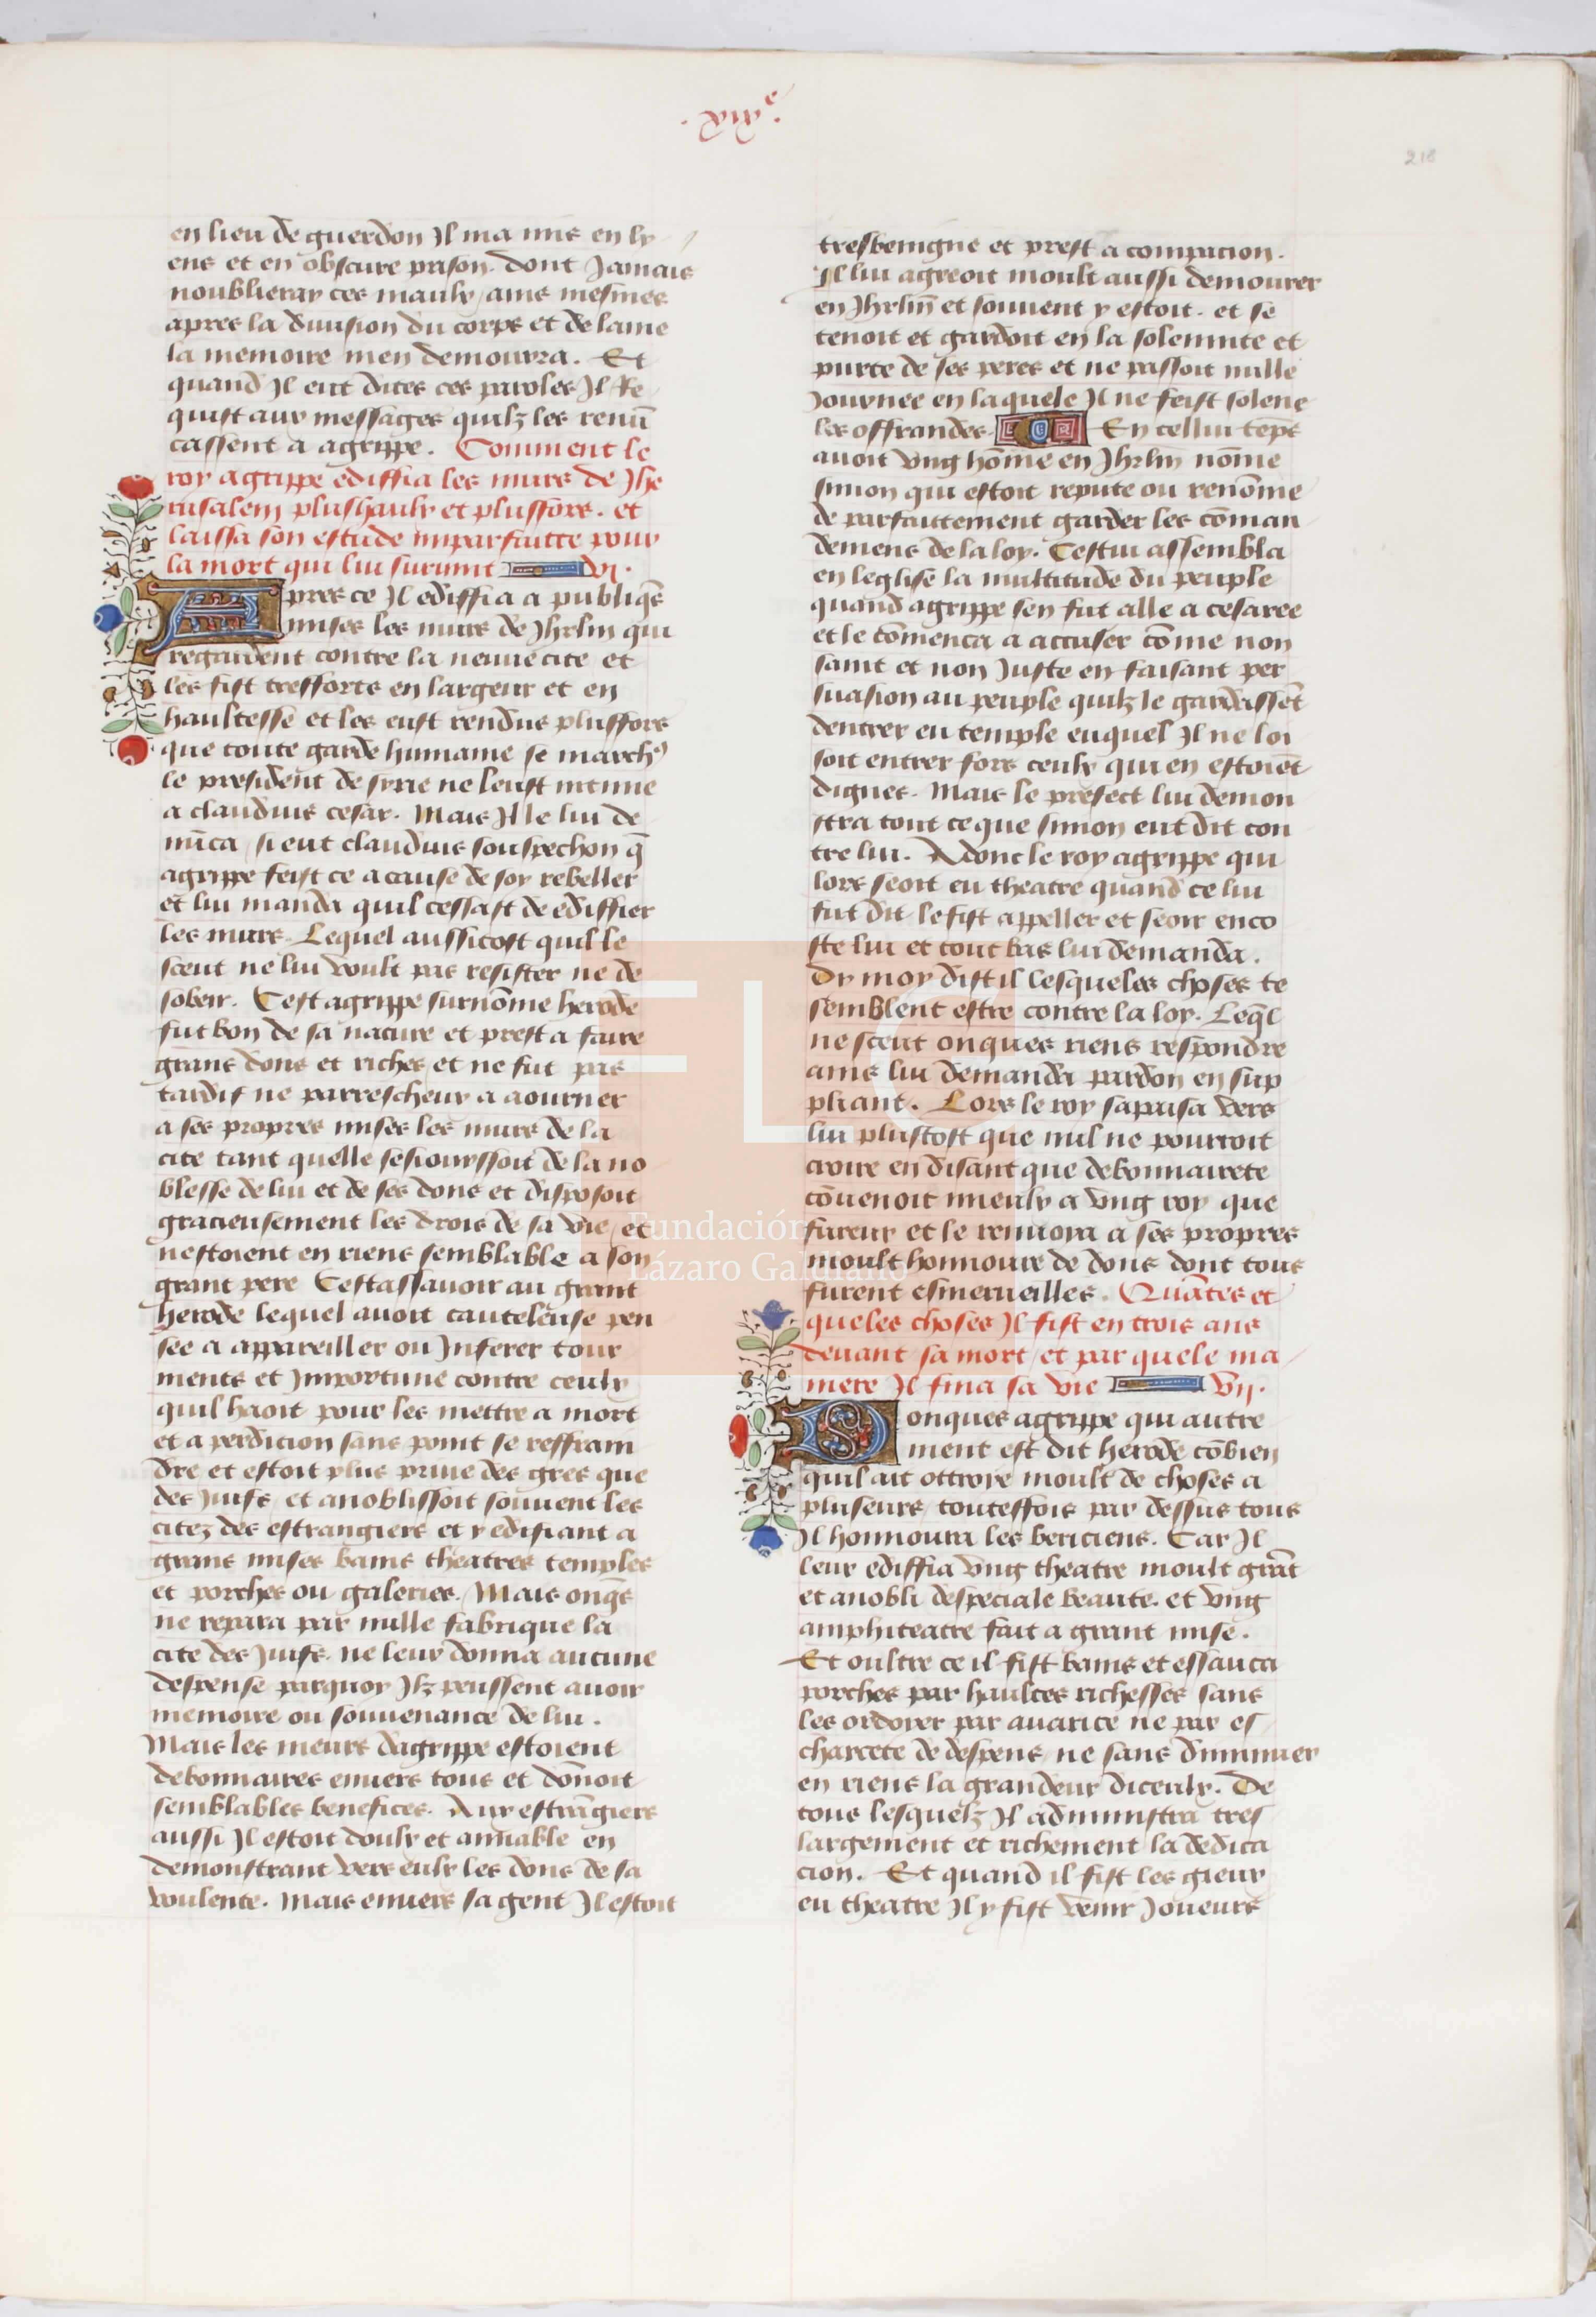 .xixe.
218
en lieu de guerdon Il ma mis en ly
ens et en obscure prison. dont Jamais
noublieray ces maulx / ains mesmes
apres la diuision du corps et de lame
la memoire men demourra. Et
quand Il eut dites ces paroles Il Re
quist aux messages quilz les renū
cassent a agrippe. Comment le
roy agrippe ediffia les murs de Jhe
rusalem plus haulx et plus fors. et
laissa son estude imparfaitte pour
la mort qui lui suruint vi.
Apres ce Il ediffia a publiqs̄
mises les murs de Jhrlm qui
regardent contre la neuue cite et
les fist tresfforts en largeur et en
haultesse et les eust rendus plusfors
que toute garde humaine se march9
le president de syrie ne leust intime
a claudius cesar. Mais Il le lui de
nūca / si eut claudius souspechon q̄
agrippe feist ce a cause de soy rebeller
et lui manda quil cessast de ediffier
les murs. Lequel aussitost quil le
sceut ne lui voult pas resister ne de
sobeir. Cest agrippe surnōme herode
fut bon de sa nature et prest a faire
grans dons et riches et ne fut pas
tardif ne parrescheux a aourner
a ses propres mises les murs de la
cite tant quelle sesiouyssoit de la no
blesse de lui et de ses dons et disposoit
gracieusement les drois de sa vie / et
nestoient en riens semblable a son
grant pere Cestassauoir au grant
herode lequel auoit cauteleuse pen
see a appareiller ou Inferer tour
ments et Importune contre ceulx
quil haoit pour les mettre a mort
et a perdicion sans point se reffrain
dre et estoit plus priue des gres que
des Juifs / et anoblissoit souuent les
citez des estrangiers et y edifiant a
grans mises bains theatres temples
et porches ou galeries. Mais onqs̄
ne repara par nulle fabrique la
cite des Juifs. ne leur donna aucune
despense parquoy Ilz peussent auoir
memoire ou souuenance de lui.
Mais les meurs dagrippe estoient
debonnaires enuers tous et dōnoit
semblables benefices. Aux estrāgiers
aussi Il estoit doulx et amiable en
demonstrant vers eulx les dons de sa
voulente. Mais enuers sa gent Il estoit
tresbenigne et prest a compacion.
Il lui agreoit moult aussi demourer
en Jhrlm̄ et souuent y estoit. et se
tenoit et gardoit en la solennite et
purte de ses peres et ne passoit nulle
Journee en laquele Il ne feist solene
les offrandes. En cellui tēps
auoit vng hōme en Jhrlm nōme
simon qui estoit repute ou renōme
de parfaittement garder les cōman
demens de la loy. Cestui assembla
en leglise la multitude du peuple
quand agrippe sen fut alle a cesaree
et le cōmenca a accuser cōme non
saint et non Juste en faisant per
suasion au peuple quilz le gardassēt
dentrer en temple euquel Il ne loi
soit entrer fors ceulx qui en estoiēt
dignes. Mais le prefect lui demon
stra tout ce que simon eut dit con
tre lui. Adonc le roy agrippe qui
lors seoit eu theatre quand ce lui
fut dit le fist appeller et seoir enco
ste lui et tout bas lui demanda.
Dy moy dist il lesqueles choses te
semblent estre contre la loy. Leq̄l
ne sceut onques riens respondre
ains lui demanda pardon en sup
pliant. Lors le roy sapaisa vers
lui plustost que nul ne pourroit
croire en disant que debonnairete
cōuenoit mieulx a vng roy que
fureur et le renuoya a ses propres
moult honnoure de dons dont tous
furent esmerueilles. Quātes et
queles choses Il fist en trois ans
deuant sa mort / et par quele ma
niere Il fina sa vie vii.
Donques agrippe qui autre
ment est dit herode cōbien
quil ait ottroye moult de choses a
pluseurs / touteffois par dessus tous
Il honnoura les bericiens. Car Il
leur ediffia vng theatre moult grāt
et anobli despeciale beaute. et vng
amphiteatre fait a grant mise.
Et oultre ce il fist bains et essauca
porches par haultes richesses sans
les ordoyer par auarice ne par es
charcete de despens / ne sans diminuer
en riens la grandeur diceulx. De
tous lesquelz Il administra tres
largement et richement la dedica
cion. Et quand il fist les gieux
eu theatre Il y fist venir Joueurs
Fundación
Lázaro Galdiano